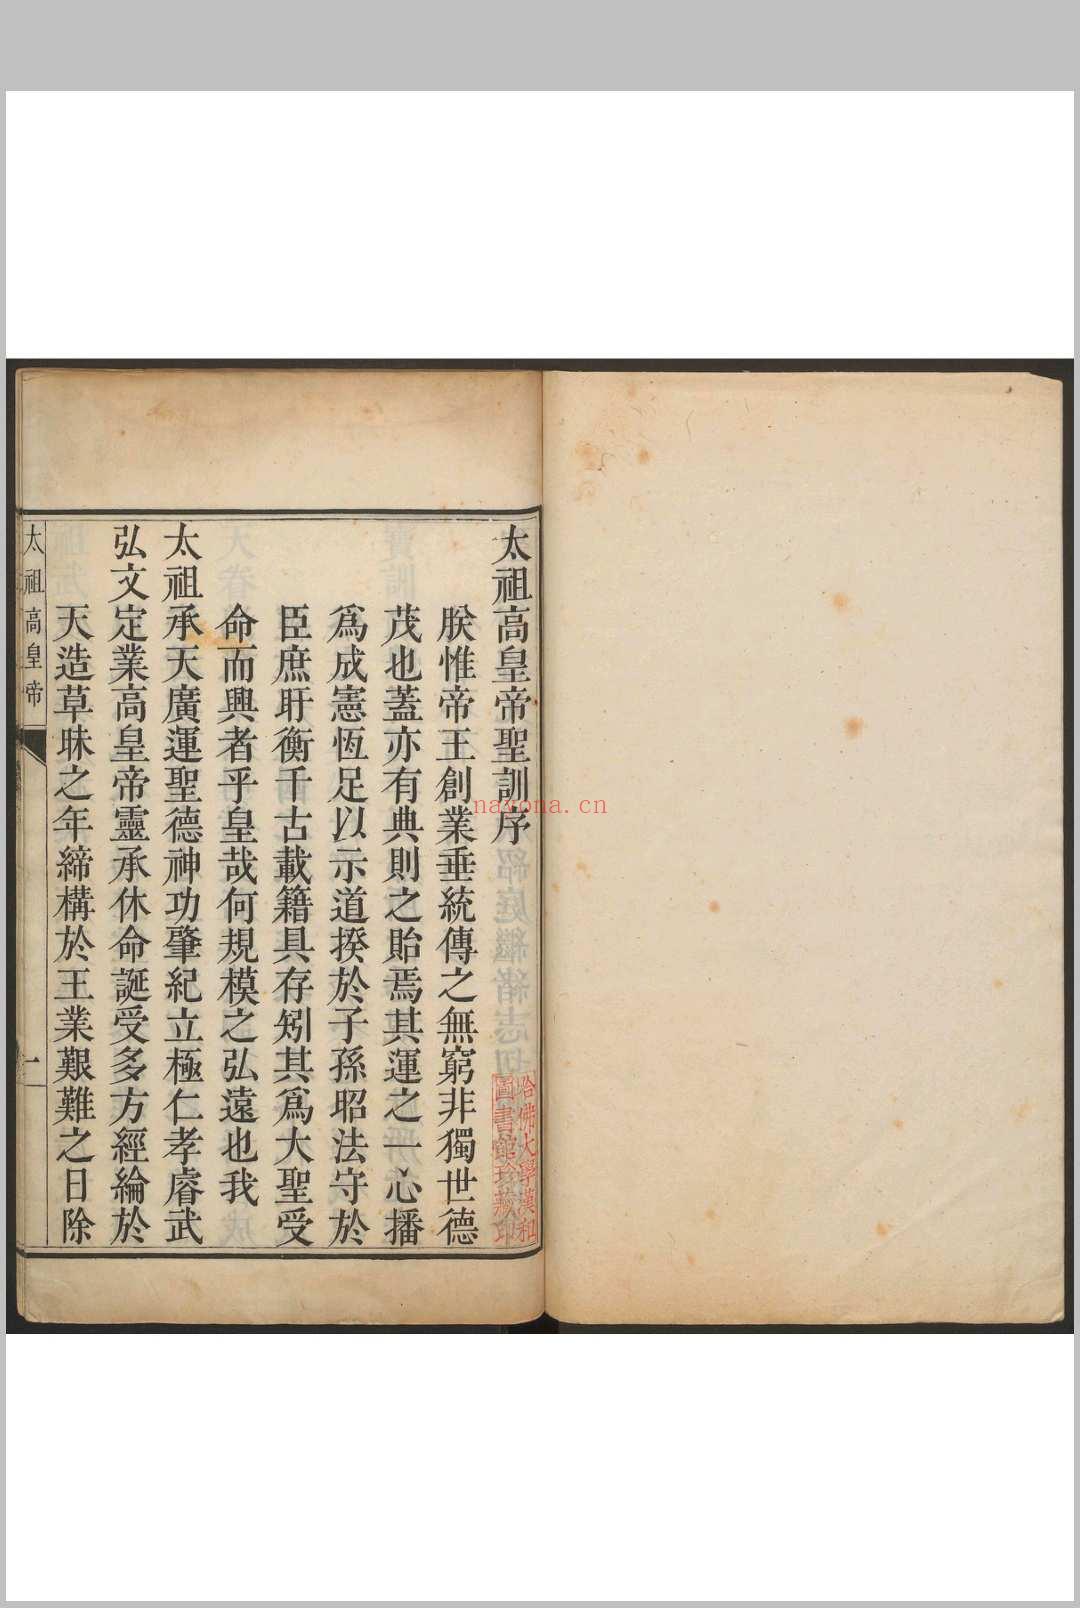 太祖高皇帝聖訓序
朕惟帝王創業垂統傳之無窮非獨世德
茂也蓋亦有典則之貽焉其運之一心播
爲成憲恆足以示道揆於子孫昭法守於
臣庶盱衡千古載籍具存矧其爲大聖受
命而興者乎皇哉何規模之弘遠也我
太祖承天廣運聖德神功肇紀立極仁孝睿武
弘文定業高皇帝靈承休命誕受多方經綸於
天造草昧之年締構於王業艱難之日除
太祖高皇帝
一
哈佛大學漢和
圖書館珍藏印
nayona.cn